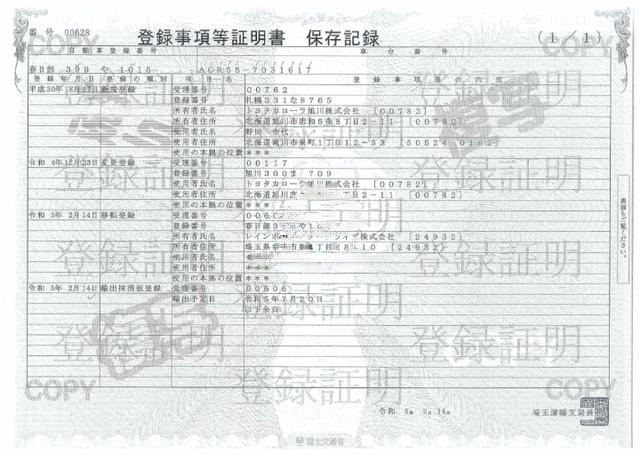 番号 00628
登録事項等証明書 保存記録
(1/1)
自動車登録番号 車台番号
春日部 399 や 1015 ACR55-7031614
登録年月日 登録の種別 項目名 登録事項等の内容
平成30年 8月17日 新規登録 受理番号 00762
登録番号 札幌331な8765
所有者氏名 トヨタカローラ旭川株式会社 [00782]
所有者住所 北海道旭川市忠和5条8丁目2-11 [00782]
使用者氏名
使用者住所 北海道滝川市栄町1丁目12-33
使用の本拠の位置 ***
令和 4年12月23日 変更登録 受理番号 00117
登録番号 旭川300 709
使用者氏名 トヨタカローラ旭川株式会社 [00782]
使用者住所 丁目2-11 [00782]
使用の本拠の位置 ***
令和 5年 2月14日 移転登録 受理番号
登録番号 春日部
所有者氏名 株式会社 [24932]
所有者住所 埼玉県 [24932]
使用者氏名 ***
使用者住所 ***
使用の本拠の位置 ***
令和 5年 2月14日 輸出抹消仮登録 受理番号 00606
輸出予定日 令和5年7月20日
以下余白
裏面もご覧ください。
登録証明
COPY
複写
令和 5年 2月14日
埼玉運輸支局長
国土交通省